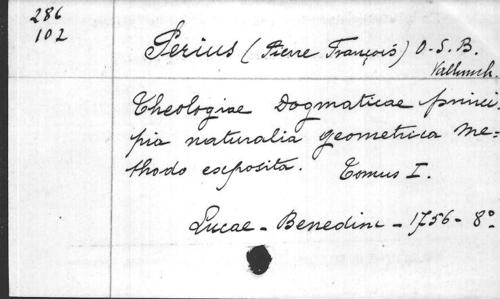 286
102
Serius (Pierre François) O.S.B.
Vallumb.
Theologiae Dogmaticae princi
pia naturalia geometrica me=
thodo exposita. Tomus I.
Lucae - Benedini - 1756 - 8º